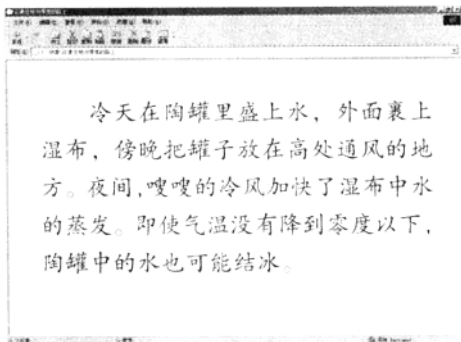 冷天在陶罐里盛上水，外面裹上
湿布，傍晚把罐子放在高处通风的地
方。夜间，嗖嗖的冷风加快了湿布中水
的蒸发。即使气温没有降到零度以下，
陶罐中的水也可能结冰。